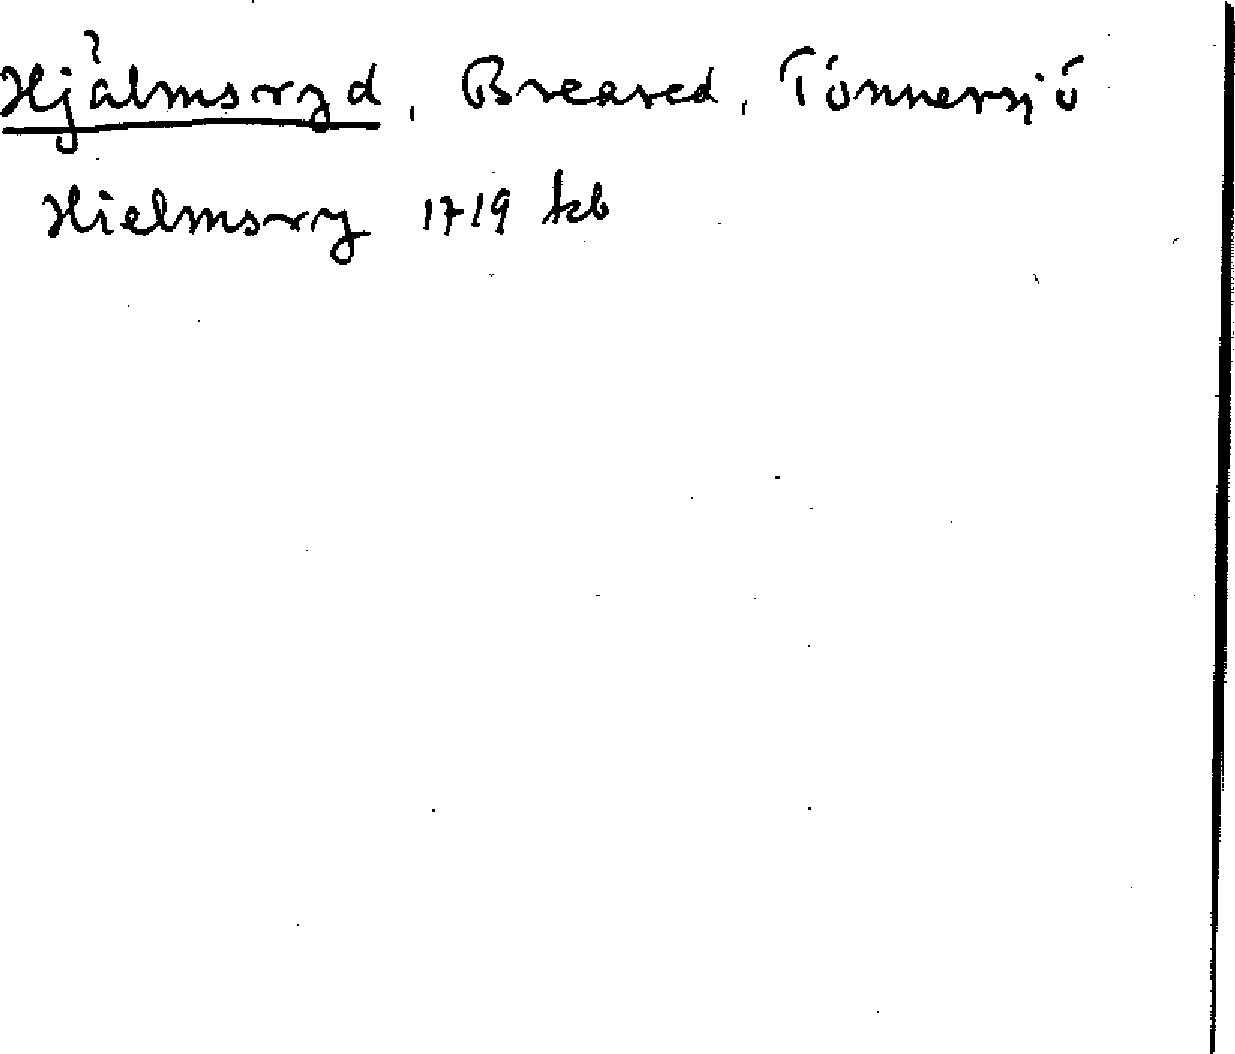 Hjälmsryd, Breared, Tönnersjö
Hielmsry 1719 kb